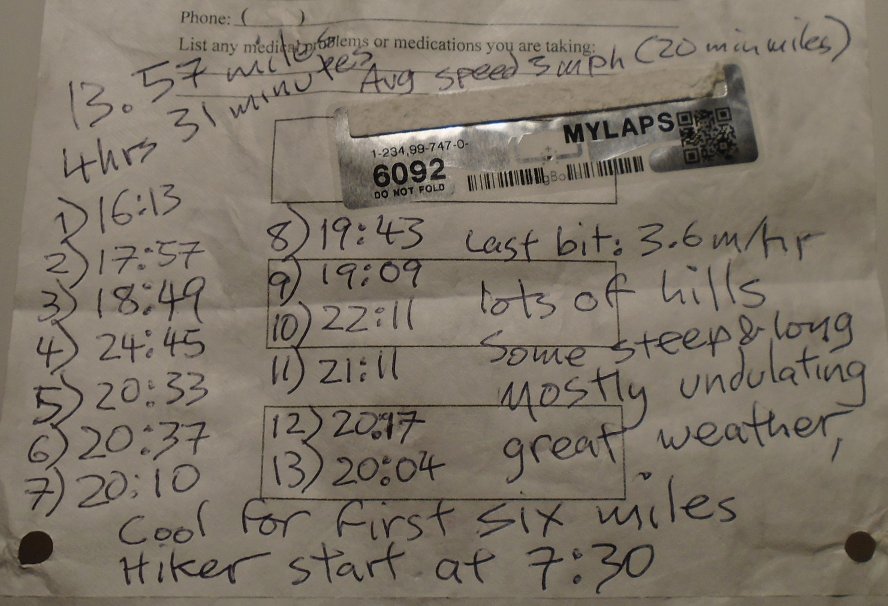 Phone: (      )
List any medical problems or medications you are taking:
13.57 miles
4hrs 31 minutes
Avg speed 3mph (20 min miles)
MYLAPS
1-234,99-747-0-
6092
DO NOT FOLD
1) 16:13
2) 17:57
3) 18:49
4) 24:45
5) 20:33
6) 20:37
7) 20:10
8) 19:43
9) 19:09
10) 22:11
11) 21:11
12) 20:17
13) 20:04
Last bit: 3.6m/hr
lots of hills
Some steep & long
Mostly undulating
great weather,
Cool for first six miles
Hiker start at 7:30